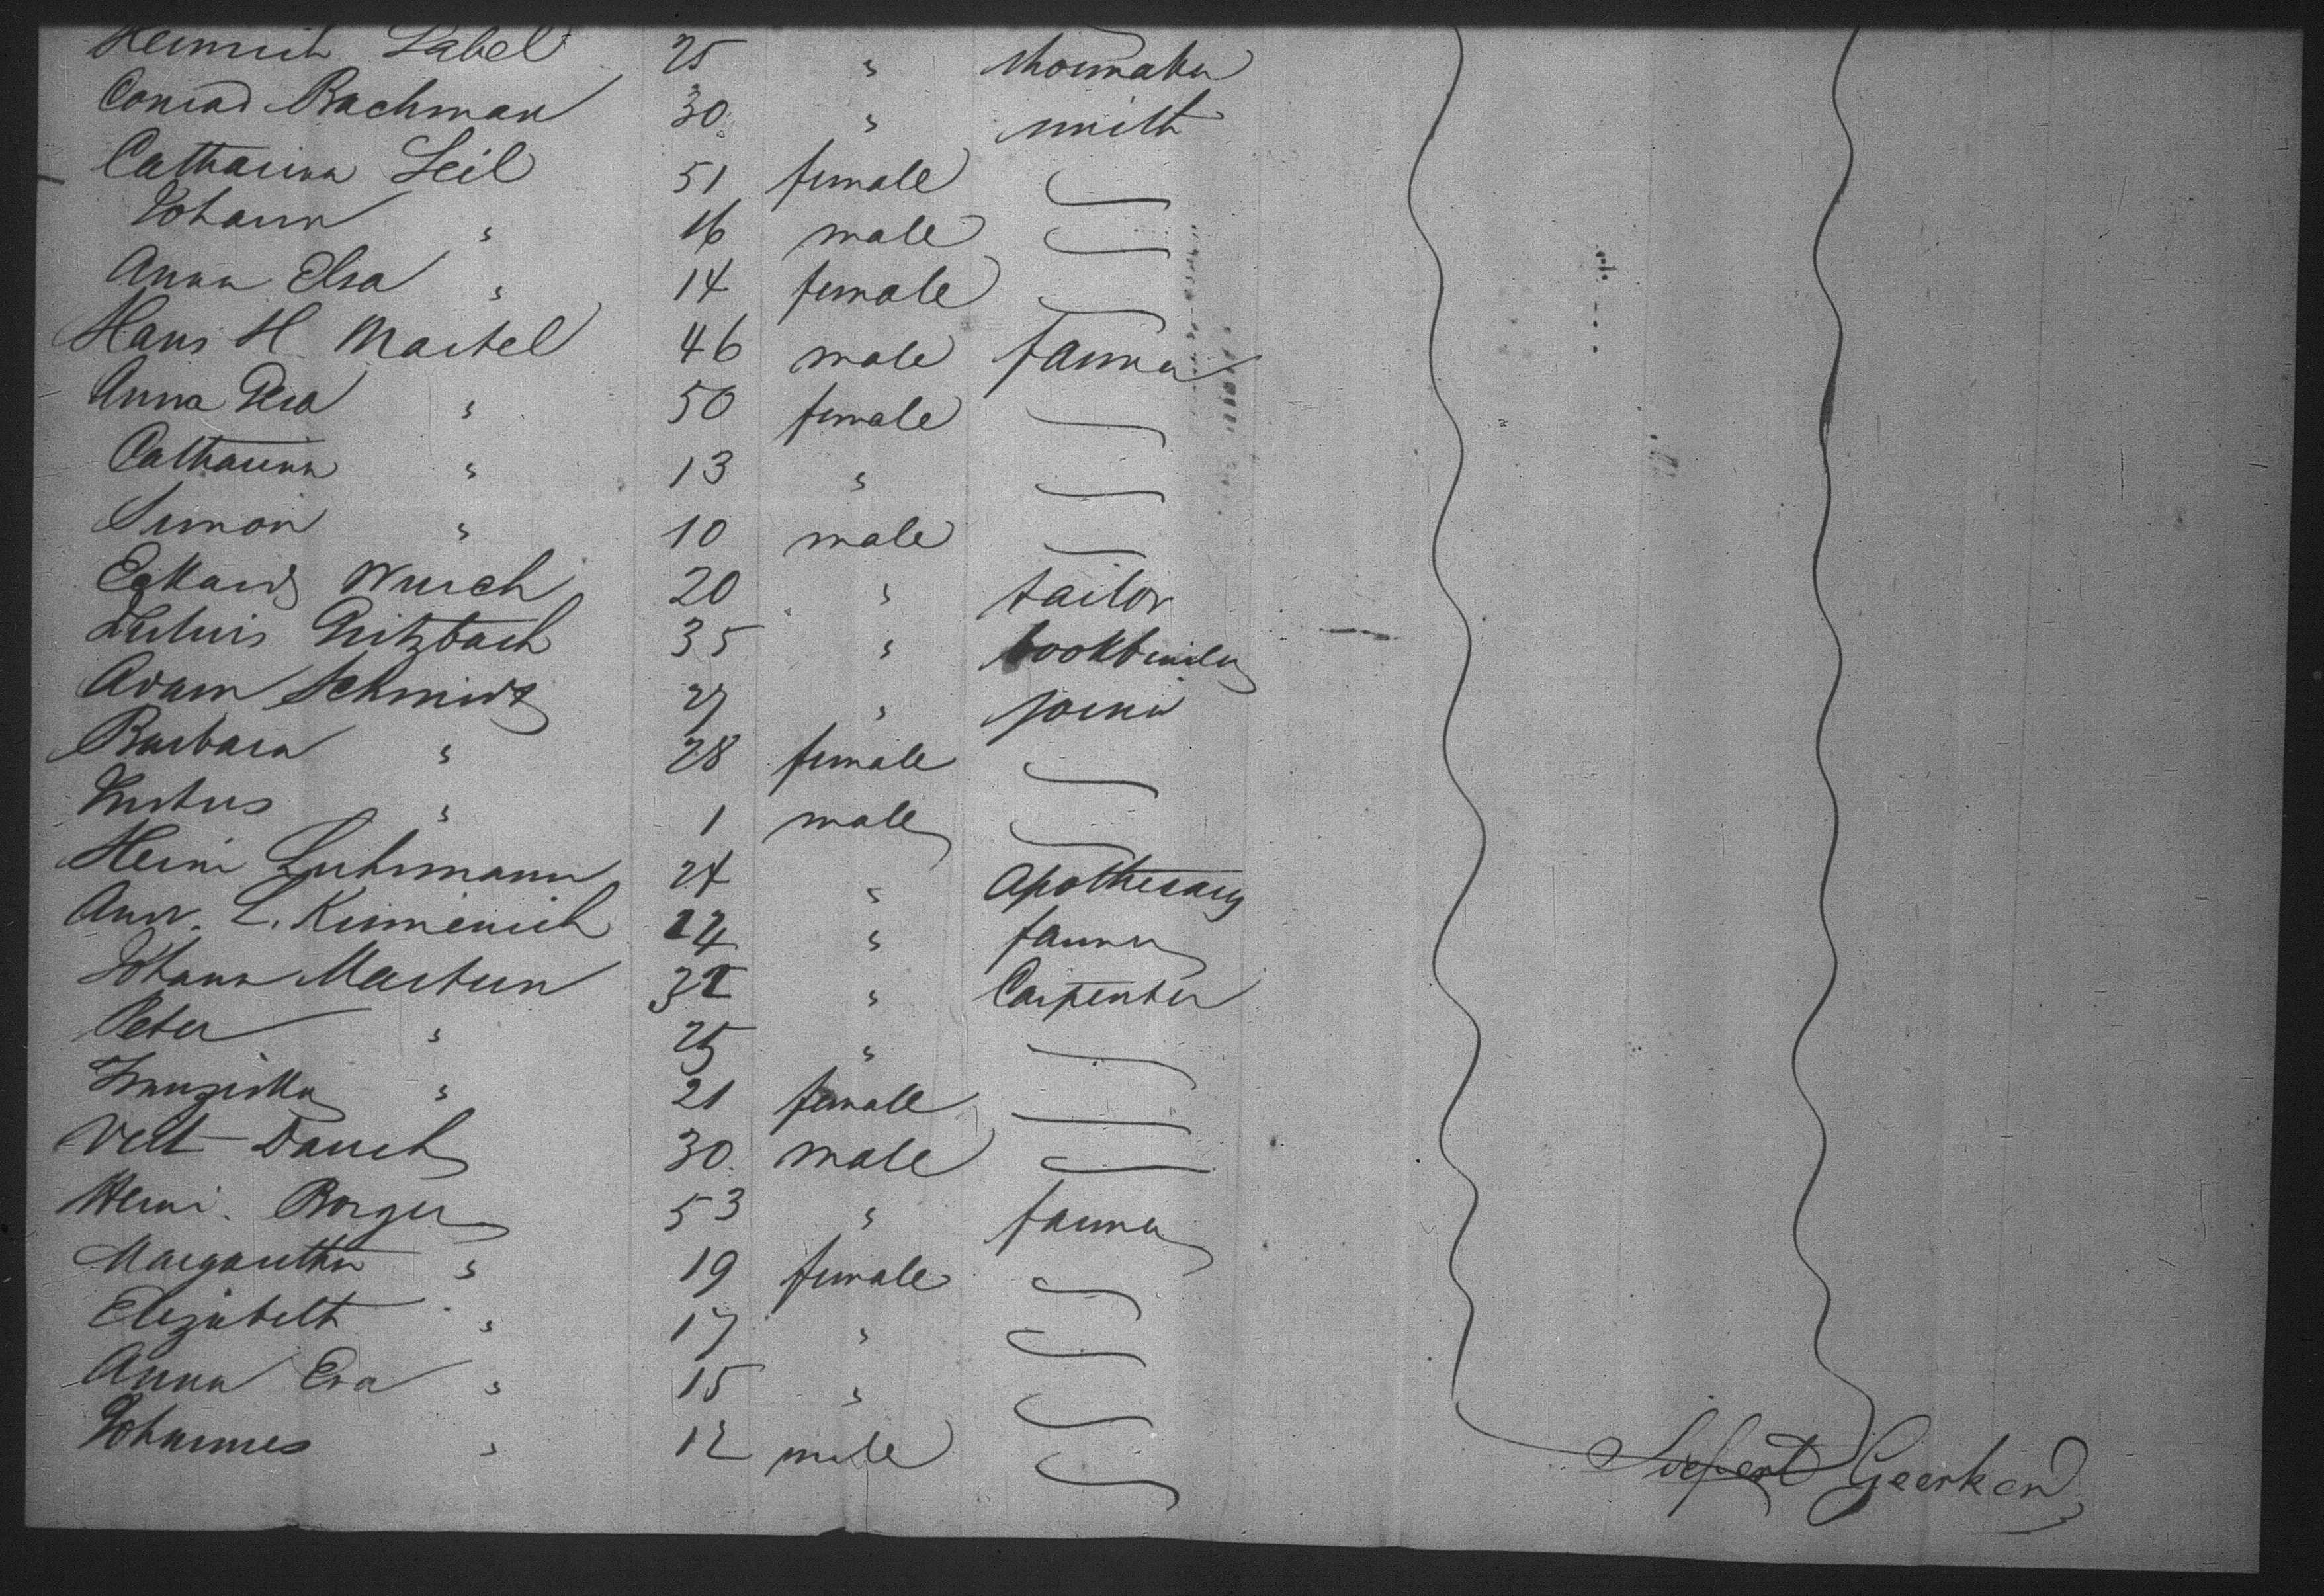 Heinrich Label 25 " shoemaker
Conrad Bachman 30 " smith
Catharina Seil 51 female —
Johann " 16 male —
Anna Elsa " 14 female —
Hans H Martel 46 male farmer
Anna " 50 female —
Catharina " 13 " —
Simon " 10 male —
Eckard Wurch 20 " tailor
Gritzbach 35 " bookbinder
Adam Schmidt 27 " joiner
Barbara " 28 female —
Justus " 1 male —
Heinr Luhrmann 24 " Apothecary
Andr. L. Kirmenich 24 " farmer
Johann Martin 32 " Carpenter
Peter " 25 " —
Franziska " 21 female —
Veit Dauch 30 male —
Heinr. Borger 53 " farmer
Margaretha " 19 female —
Elizabeth " 17 " —
Anna Eva " 15 " —
Johannes " 12 male —
Siefert Geerken